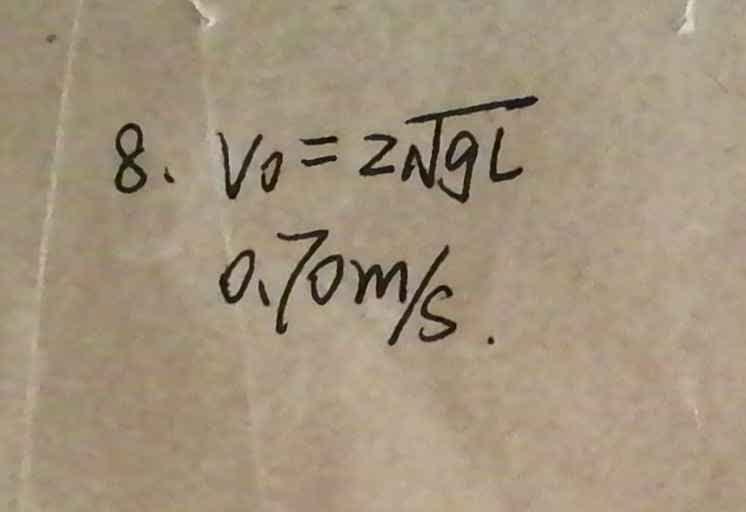 8. V₀=2√gL
0.70m/s.